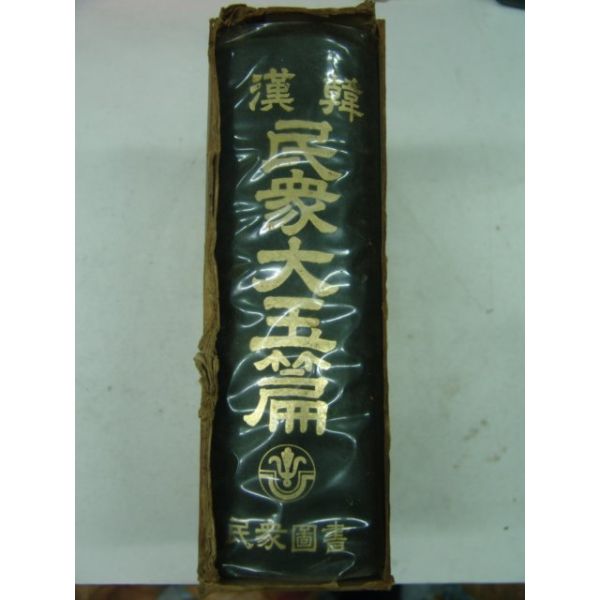 漢韓
民衆大玉篇
民衆圖書